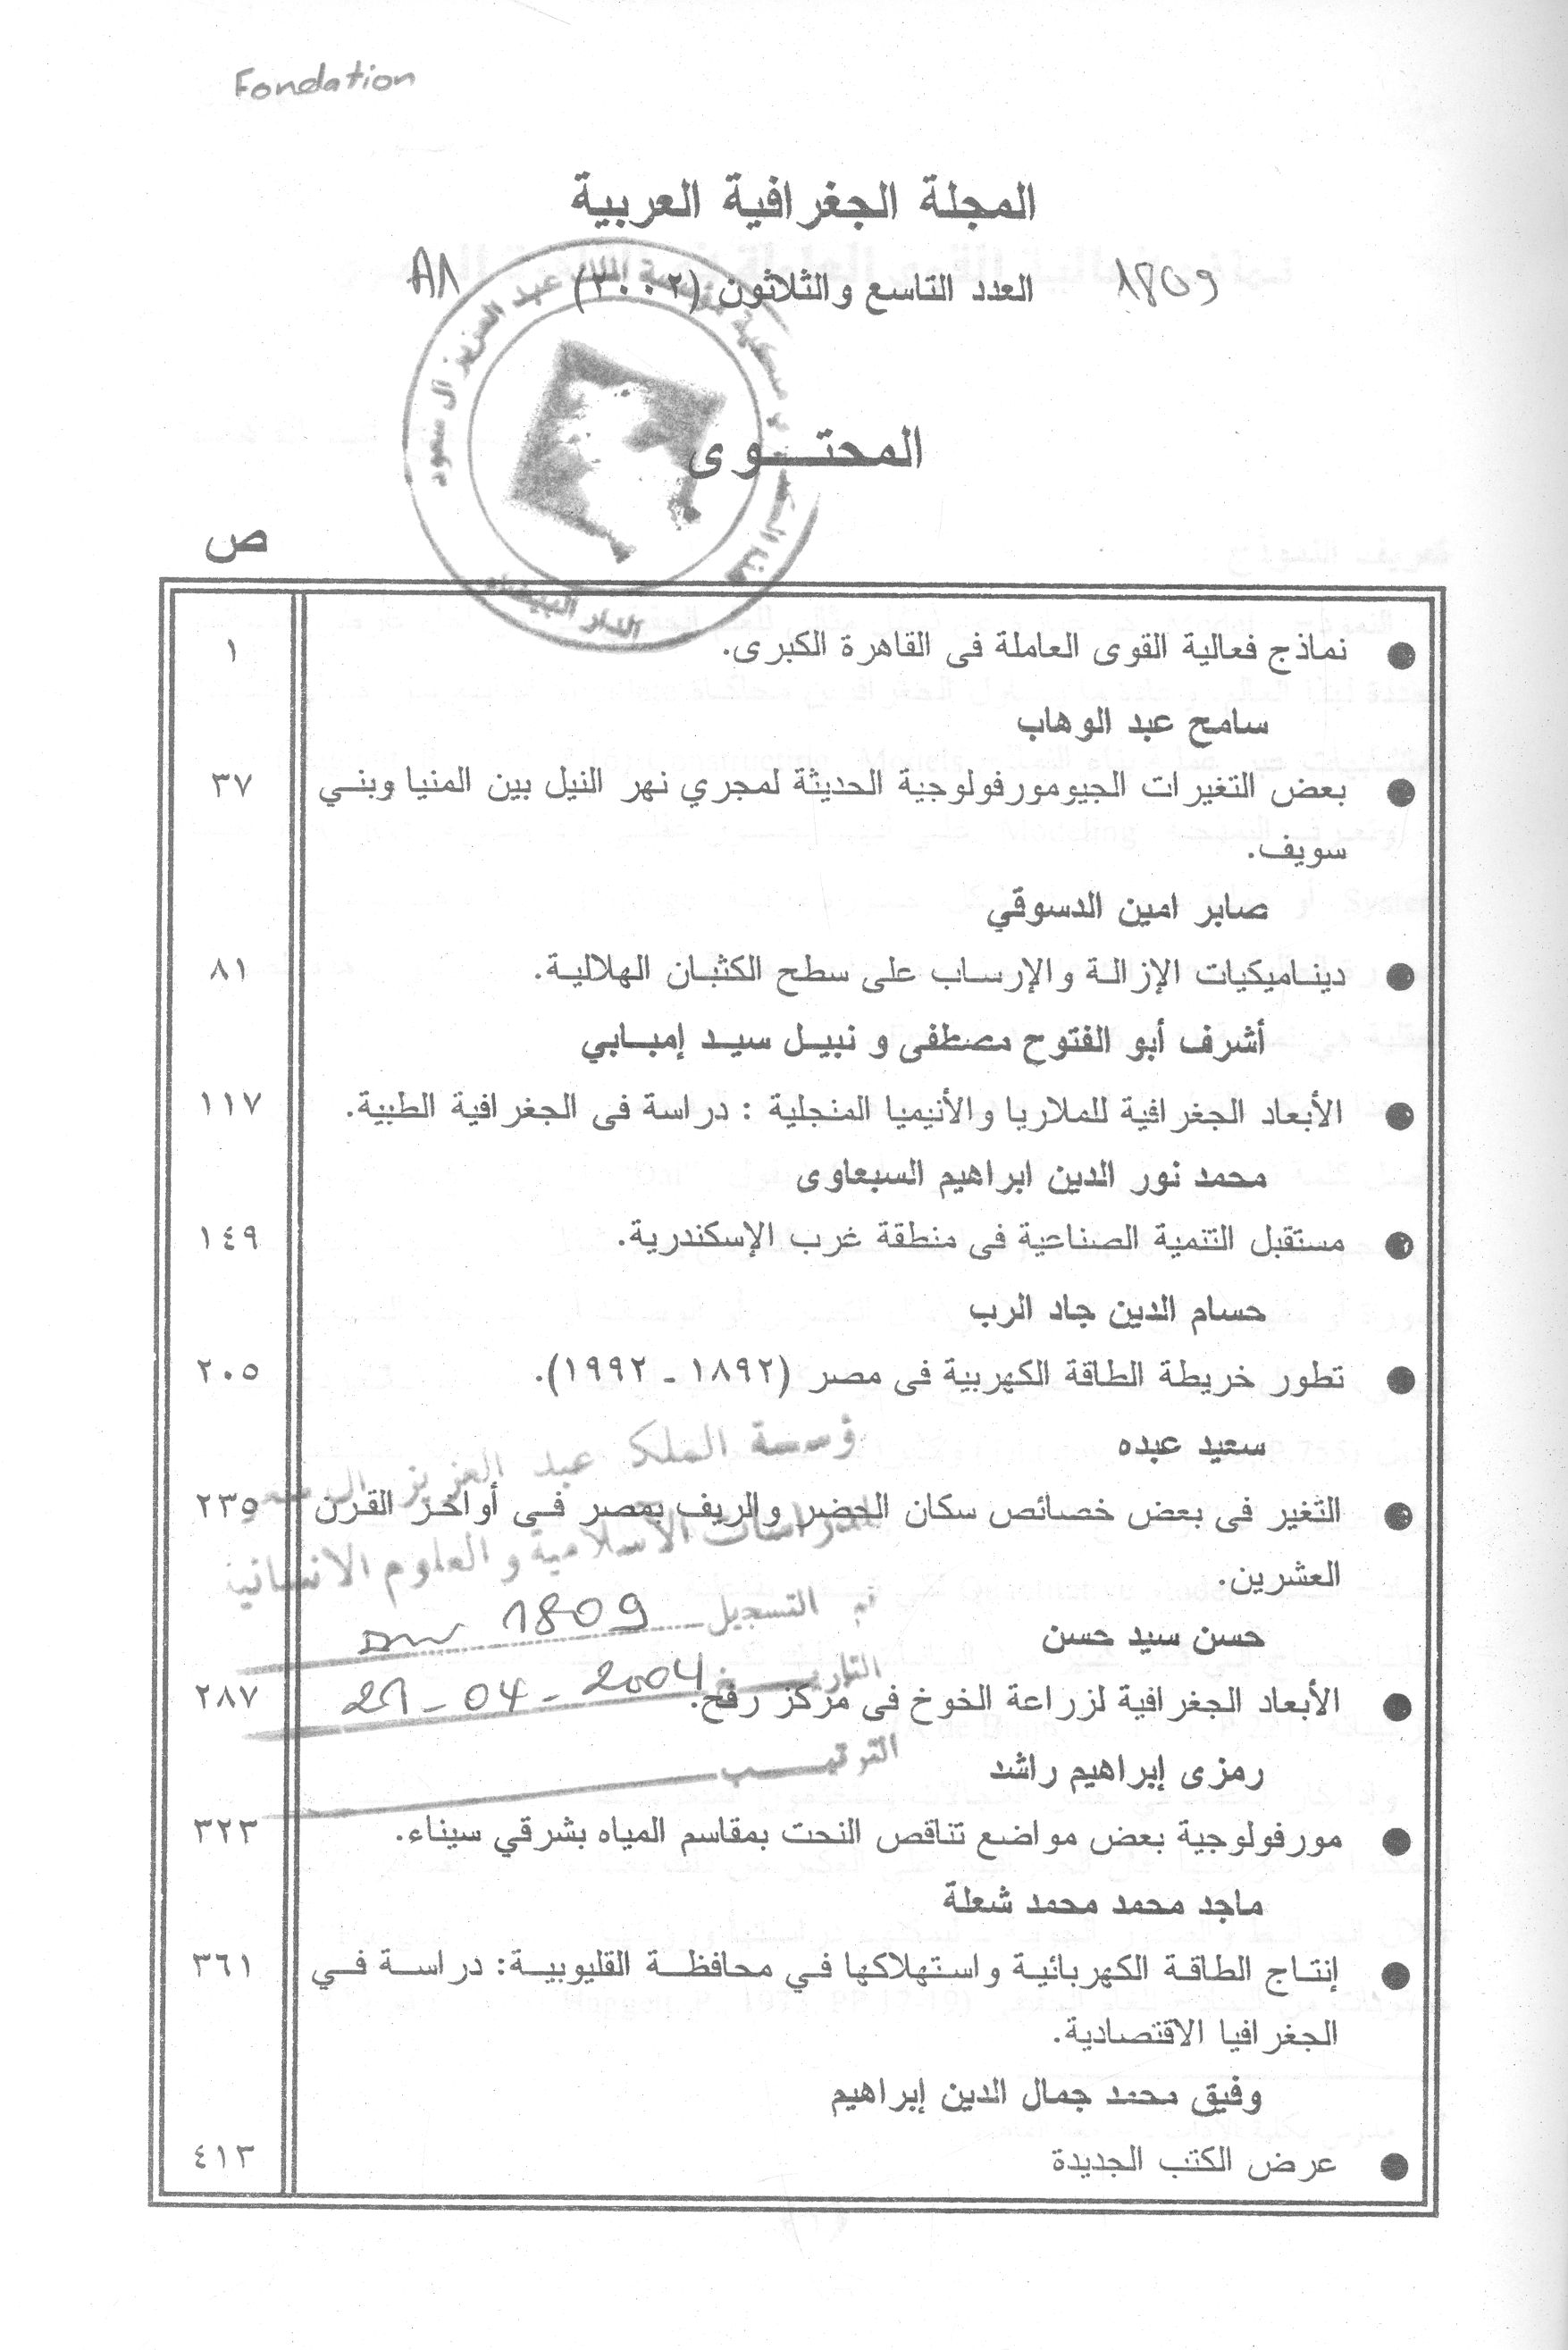 Fondation
المجلة الجغرافية العربية
1809 العدد التاسع والثلاثون (٢٠٠٢) A1
المحتــوى
ص
● نماذج فعالية القوى العاملة فى القاهرة الكبرى. ١
سامح عبد الوهاب
● بعض التغيرات الجيومورفولوجية الحديثة لمجري نهر النيل بين المنيا وبني ٣٧
سويف.
صابر امين الدسوقي
● ديناميكيات الإزالة والإرساب على سطح الكثبان الهلالية. ٨١
أشرف أبو الفتوح مصطفى و نبيل سيد إمبابي
● الأبعاد الجغرافية للملاريا والأنيميا المنجلية : دراسة فى الجغرافية الطبية. ١١٧
محمد نور الدين ابراهيم السبعاوى
● مستقبل التنمية الصناعية فى منطقة غرب الإسكندرية. ١٤٩
حسام الدين جاد الرب
● تطور خريطة الطاقة الكهربية فى مصر (١٨٩٢ - ١٩٩٢). ٢٠٥
سعيد عبده
● التغير فى بعض خصائص سكان الحضر والريف بمصر فى أواخر القرن ٢٣٥
العشرين.
حسن سيد حسن
● الأبعاد الجغرافية لزراعة الخوخ فى مركز رفح. ٢٨٧
رمزى إبراهيم راشد
● مورفولوجية بعض مواضع تناقص النحت بمقاسم المياه بشرقي سيناء. ٣٢٣
ماجد محمد محمد شعلة
● إنتاج الطاقة الكهربائية واستهلاكها في محافظة القليوبية: دراسة في ٣٦١
الجغرافيا الاقتصادية.
وفيق محمد جمال الدين إبراهيم
● عرض الكتب الجديدة ٤١٣
الملك عبد العزيز آل سعود
الدار البيضاء
ؤسسة الملك عبد العزيز ال سعو
للدراسات الاسلامية والعلوم الانسانية
التسجيل 1809
التاريخ 21-04-2004
الترتيب